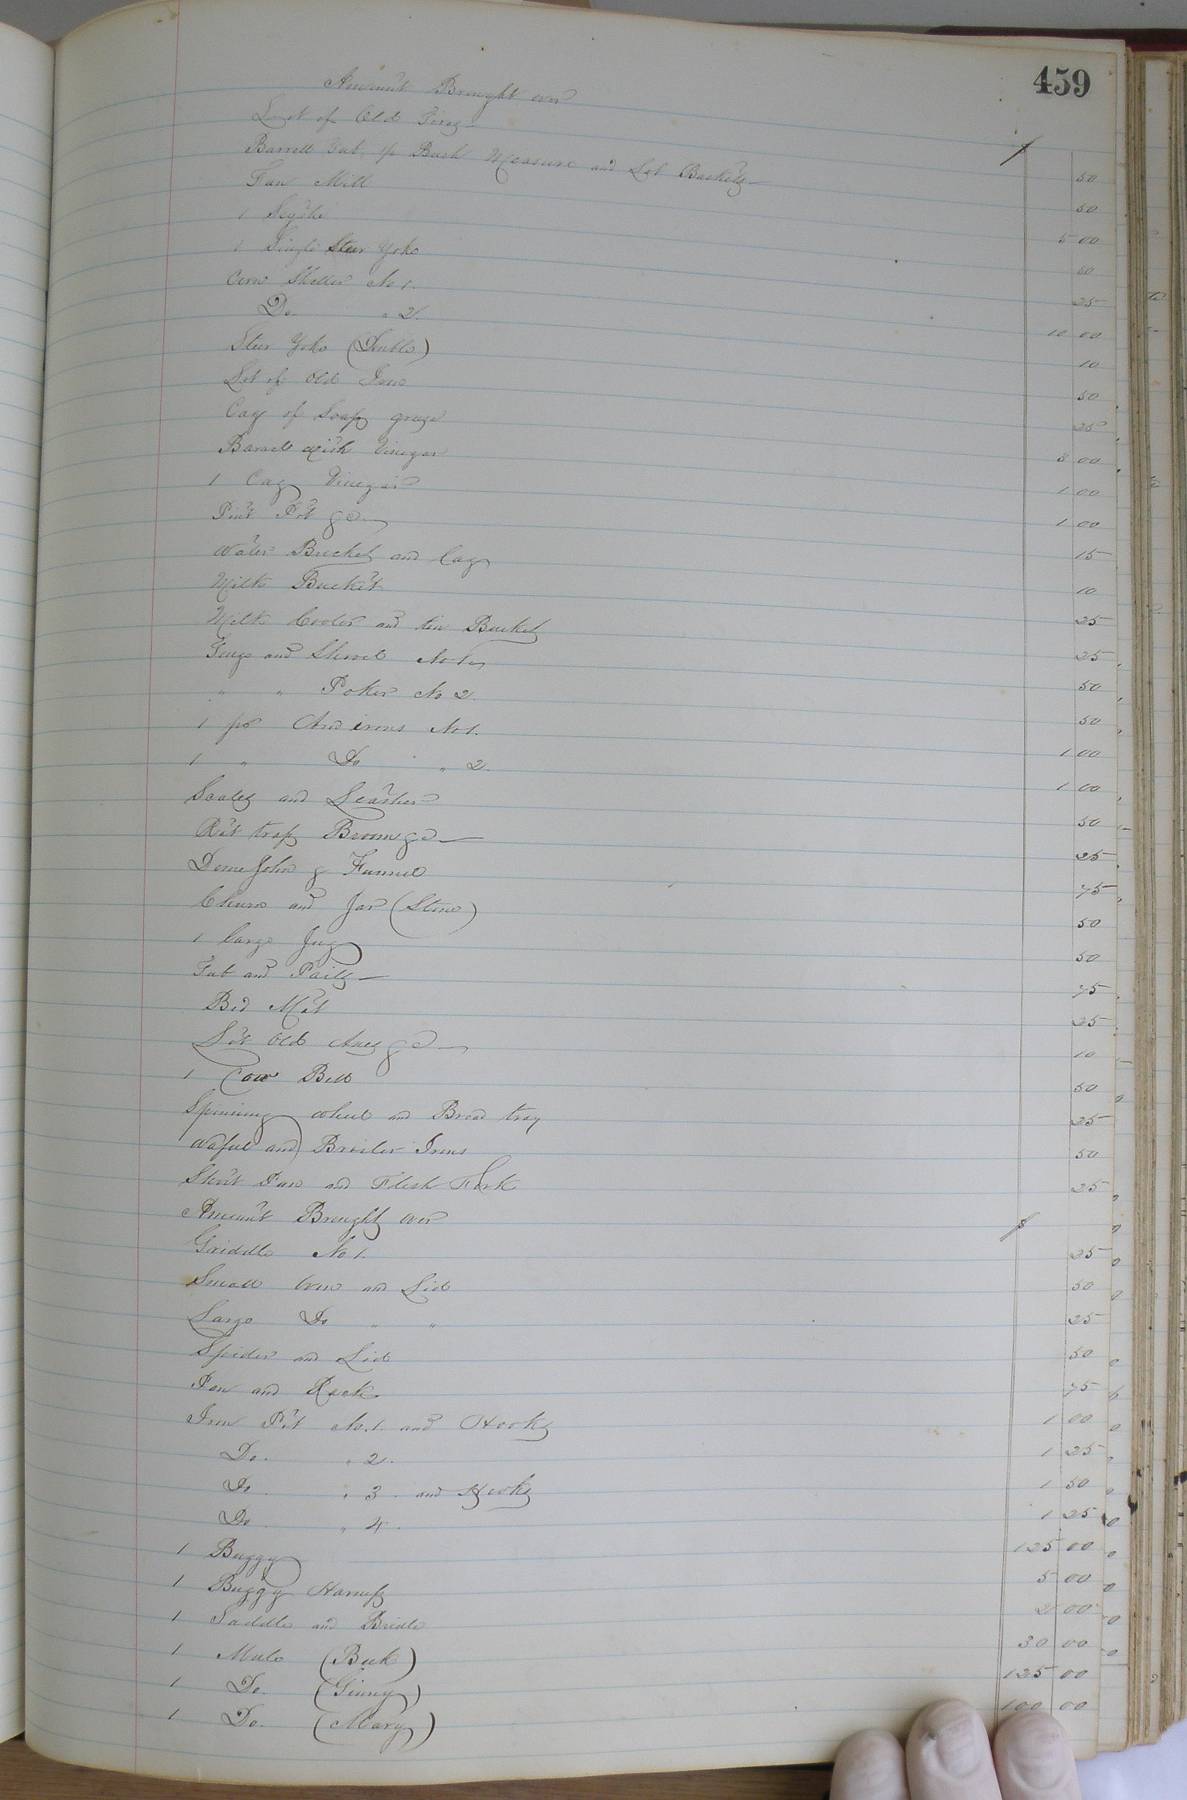 459
Amount Brought over $
Lot of Old Irons 50
Barrell Tub, 1/2 Bush Measure and Lot Baskets 50
Fan Mill 5 00
1 Scythe 50
1 Single Steer Yoke 25
Corn Sheller No 1. 10 00
Do. " 2. 10
Steer Yoke (Double) 50
Lot of Old Iron 25
Cag of Soap grease 3 00
Barrell with Vinegar 1 00
1 Cag Vinegar 1 00
Pint Pot &c 15
Water Bucket and Cag 10
Milk Bucket 25
Milk Cooler and tin Bucket 25
Tongs and Shovel No 1 50
" " Poker No 2. 50
1 pr And irons No 1. 1 00
1 " Do " 2. 1 00
Scales and Leather 50
Rat trap Broom &c 25
Deme John & Funnel 75
Churn and Jar (Stone) 50
1 large Jug 50
Tub and Pails 75
Bed Mat 25
Lot Old Axes &c 10
1 Cow Bell 50
Spinning wheel and Bread tray 25
Waful and Broiler Irons 50
Skirt Pan and Flesh Fork 25
Amount Brought over $
Griddle No 1. 25
Small Oven and Lid 50
Large Do " " 25
Spider and Lid 50
Pan and Rack 75
Iron Pot No. 1. and Hooks 1 00
Do. " 2. 1 25
Do " 3. and Hooks 1 50
Do " 4. 1 25
1 Buggy 125 00
1 Buggy Harness 5 00
1 Saddle and Bridle 2 00
1 Mule (Beck) 30 00
1 Do. (Ginny) 125 00
1 Do. (Mary) 100 00